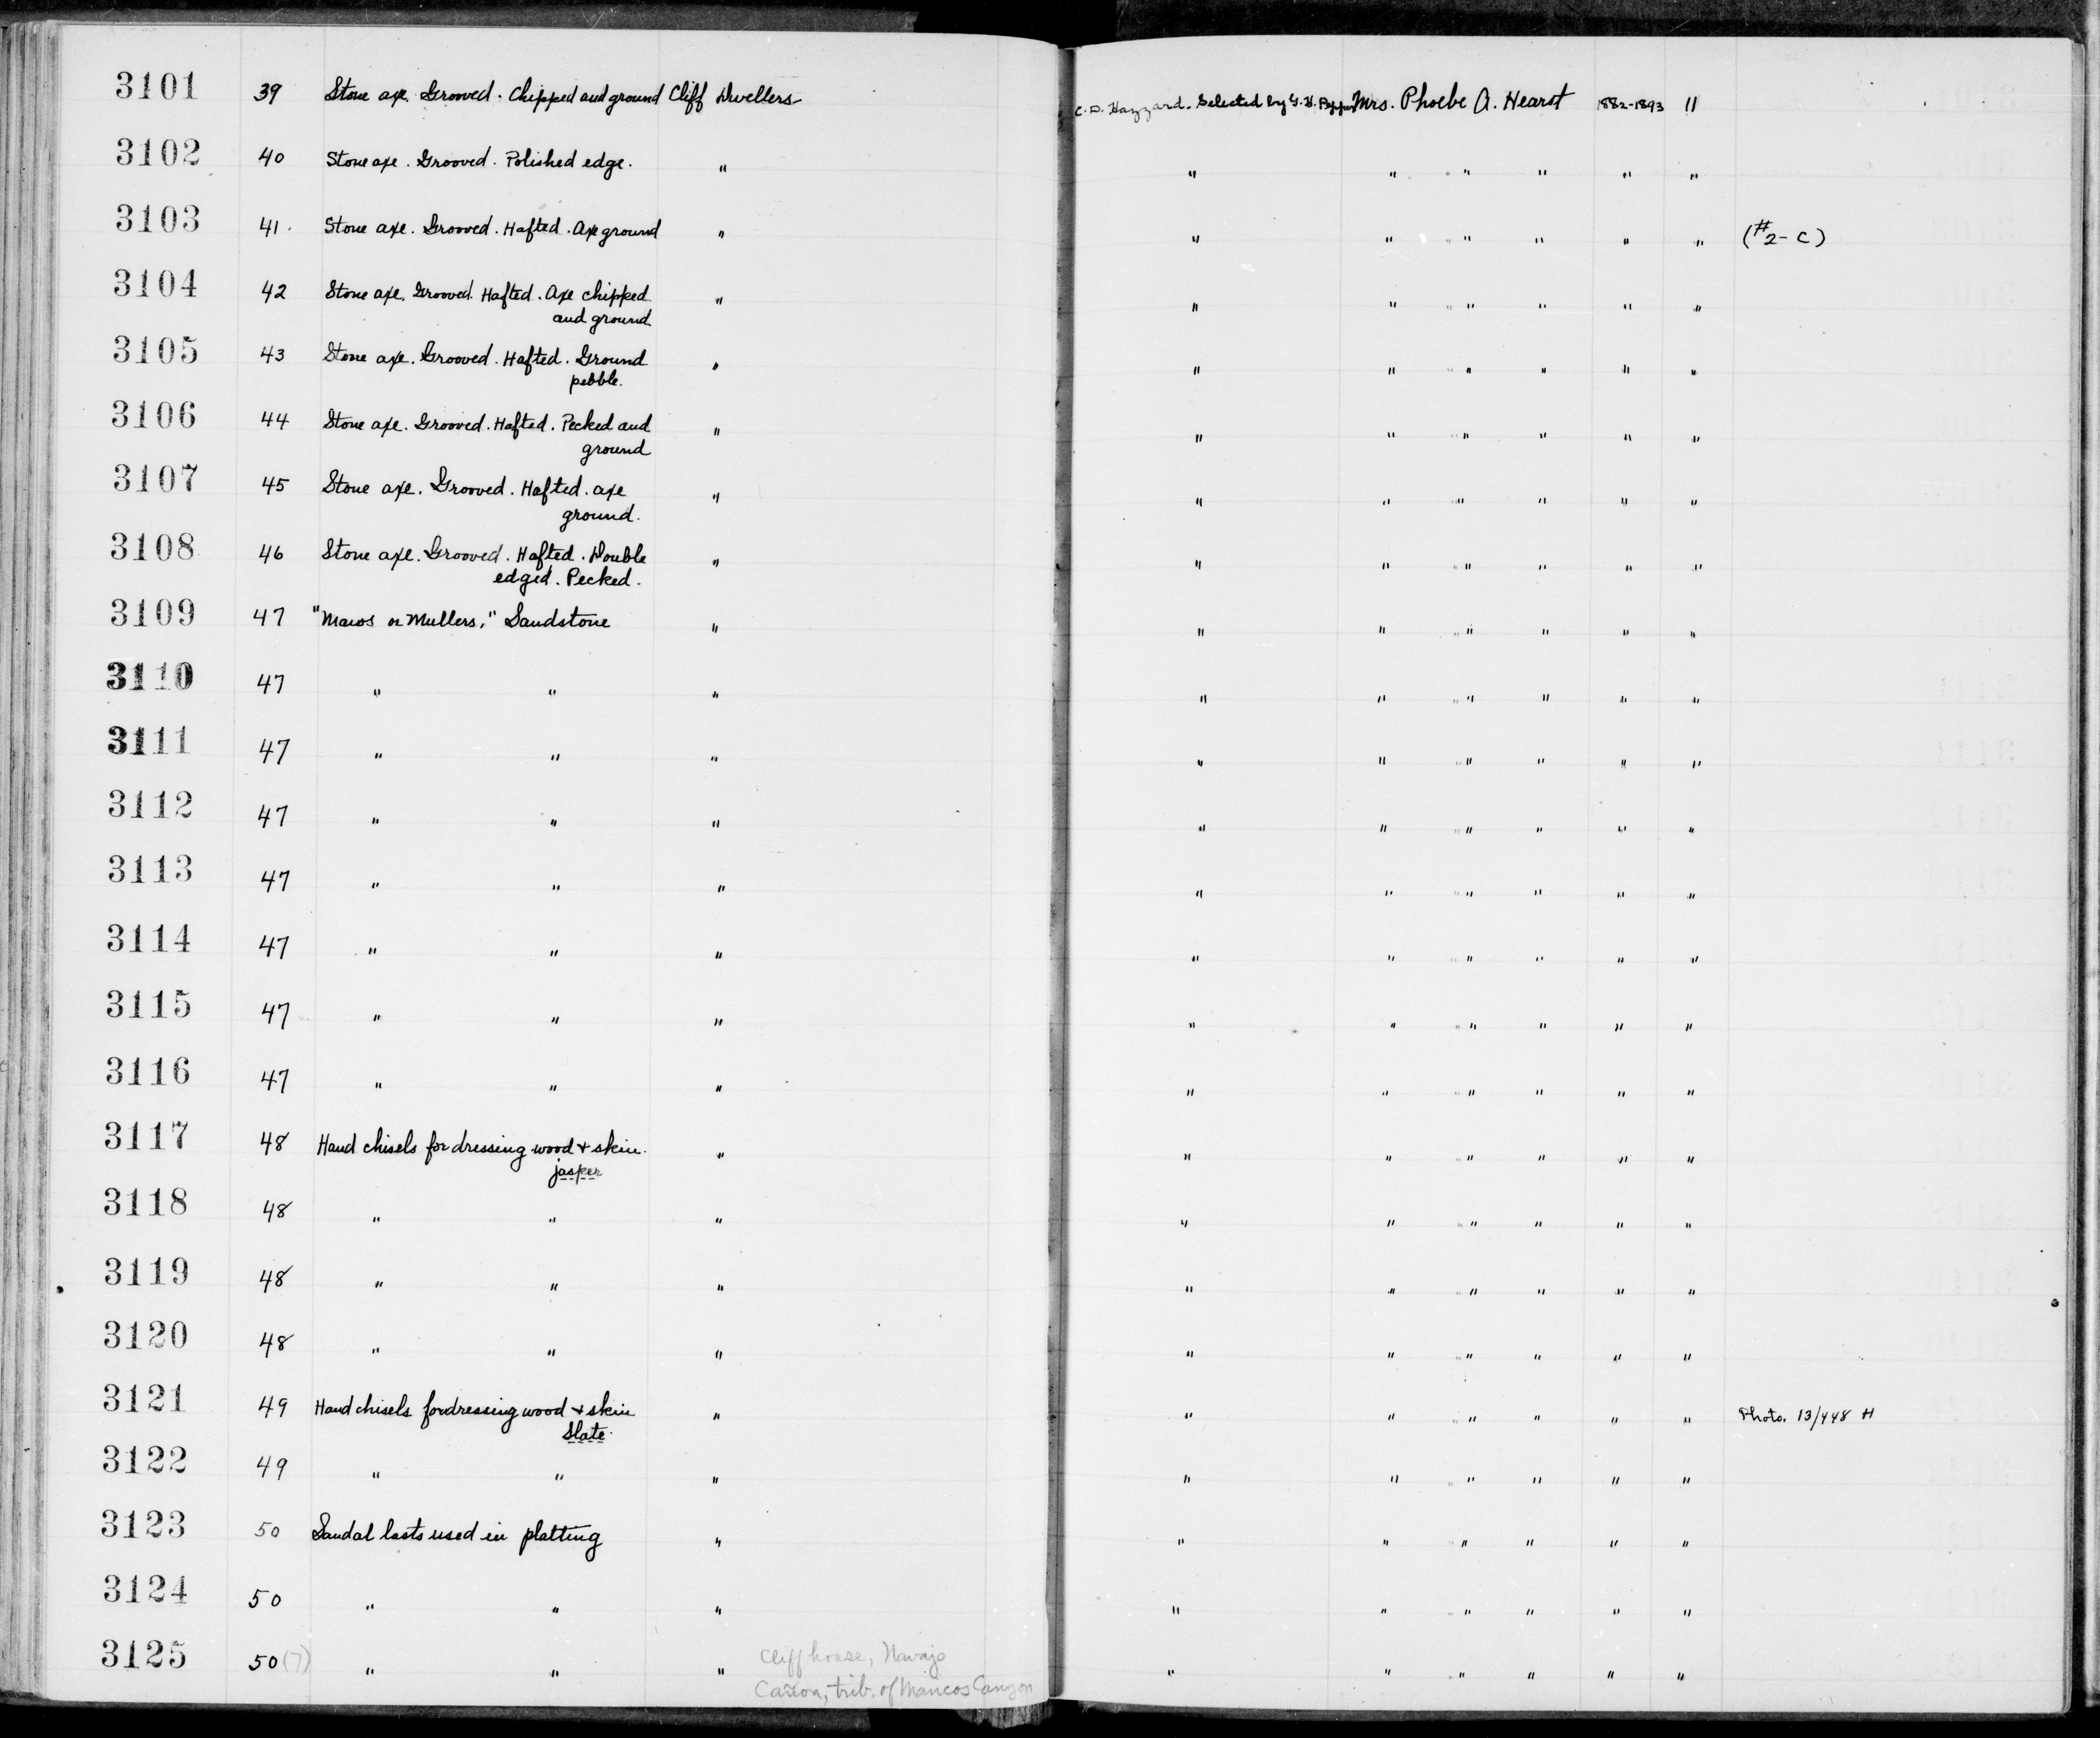 3101 39 Stone axe. Grooved. Chipped and ground Cliff Dwellers C. D. Hazzard. Selected by G. H. Pepper Mrs. Phoebe A. Hearst 1882-1893 "
3102 40 Stone axe. Grooved. Polished edge. " " " " " " "
3103 41. Stone axe. Grooved. Hafted. Axe ground " " " " " " " (#2-C)
3104 42 Stone axe. Grooved. Hafted. Axe chipped " " " " " " "
and ground
3105 43 Stone axe. Grooved. Hafted. Ground " " " " " " "
pebble.
3106 44 Stone axe. Grooved. Hafted. Pecked and " " " " " " "
ground
3107 45 Stone axe. Grooved. Hafted. axe " " " " " " "
ground.
3108 46 Stone axe. Grooved. Hafted. Double " " " " " " "
edged. Pecked.
3109 47 "Manos or Mullers," Sandstone " " " " " " "
3110 47 " " " " " " " " "
3111 47 " " " " " " " " "
3112 47 " " " " " " " " "
3113 47 " " " " " " " " "
3114 47 " " " " " " " " "
3115 47 " " " " " " " " "
3116 47 " " " " " " " " "
3117 48 Hand chisels for dressing wood + skin. " " " " " " "
jasper
3118 48 " " " " " " " " "
3119 48 " " " " " " " " "
3120 48 " " " " " " " " "
3121 49 Hand chisels for dressing wood + skin " " " " " " " Photo. 13/448 H
Slate.
3122 49 " " " " " " " " "
3123 50 Sandal lasts used in platting " " " " " " "
3124 50 " " " " " " " " "
3125 50 (7) " " " Cliff house, Navajo " " " " " "
Cañon, trib. of Mancos Canyon